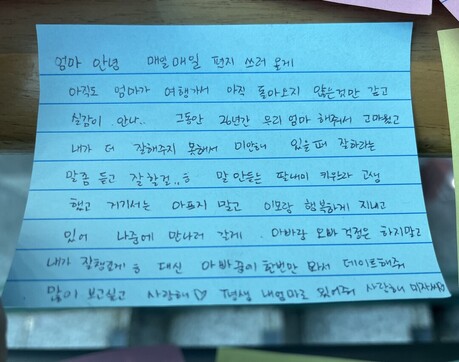 엄마 안녕 매일매일 편지 쓰러 올게
아직도 엄마가 여행가서 아직 돌아오지 않은것만 같고
실감이 안나.. 그동안 26년간 우리 엄마 해줘서 고마웠고
내가 더 잘해주지 못해서 미안해 있을때 잘하라는
말좀 듣고 잘할걸..ㅎ 말 안듣는 딸내미 키우느라 고생
했고 거기서는 아프지 말고 이모랑 행복하게 지내고
있어 나중에 만나러 갈게 . 아빠랑 오빠 걱정은 하지말고
내가 잘챙길게ㅎ 대신 아빠꿈에 한번만 와서 데이트해줘
많이 보고싶고 사랑해♡ 평생 내엄마로 있어줘 사랑해